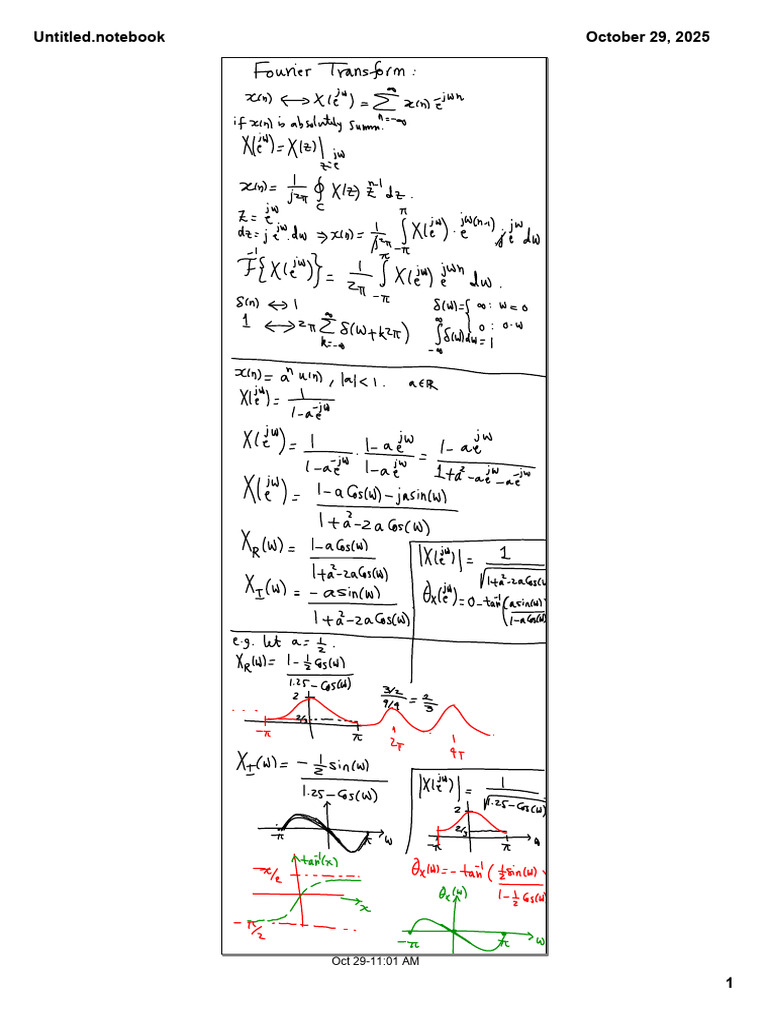 Untitled.notebook October 29, 2025
Fourier Transform:
x(n) ⟷ X(e^{jω}) = ∑_{n=-∞}^{∞} x(n) e^{-jωn}
if x(n) is absolutely summ.
X(e^{jω}) = X(z)|_{z=e^{jω}}
x(n) = 1/(j2π) ∮_C X(z) z^{n-1} dz.
z = e^{jω}
dz = j e^{jω}.dω ⇒ x(n) = 1/(j2π) ∫_{-π}^{π} X(e^{jω}) · e^{jω(n-1)} j e^{jω} dω
F^{-1}{X(e^{jω})} = 1/(2π) ∫_{-π}^{π} X(e^{jω}) e^{jωn} dω.
δ(n) ⟷ 1
1 ⟷ 2π ∑_{k=-∞}^{∞} δ(ω+k2π)
δ(ω) = { ∞ : ω = 0
0 : o.w
∫_{-∞}^{∞} δ(ω)dω = 1
x(n) = a^n u(n), |a|<1. a∈R
X(e^{jω}) = 1/(1-ae^{-jω})
X(e^{jω}) = 1/(1-ae^{-jω}) · (1-ae^{jω})/(1-ae^{jω}) = (1-ae^{jω})/(1+a²-ae^{jω}-ae^{-jω})
X(e^{jω}) = (1-a Cos(ω)-jasin(ω))/(1+a²-2a Cos(ω))
X_R(ω) = (1-aCos(ω))/(1+a²-2aCos(ω))
X_I(ω) = -asin(ω)/(1+a²-2a Cos(ω))
|X(e^{jω})| = 1/√(1+a²-2aCos(ω
θ_X(e^{jω}) = 0-tan^{-1}(asin(ω)/(1-aCos(ω)
e.g. let a = 1/2.
X_R(ω) = (1-1/2 Cos(ω))/(1.25-Cos(ω))
2
2/3
-π π
(3/2)/(9/4) = 2/3
2π 4π
X_I(ω) = -1/2 sin(ω)/(1.25-Cos(ω))
-π π ω
|X(e^{jω})| = 1/√(1.25-Cos(ω)
2
2/3
-π π
tan^{-1}(x)
-π/2
x
-π/2
θ_X(ω) = -tan^{-1}(1/2 sin(ω)/(1-1/2 Cos(ω)
θ_X(ω)
-π π ω
Oct 29-11:01 AM
1